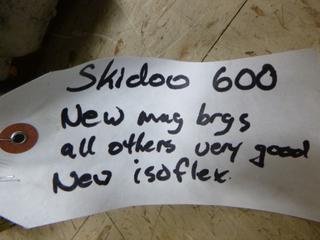 Skidoo 600
New mag brgs
all others very good
New isoflex.